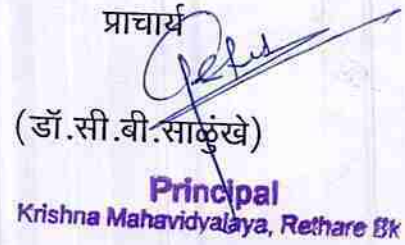 प्राचार्य
(डॉ.सी.बी.साळुंखे)
Principal
Krishna Mahavidyalaya, Rethare Bk